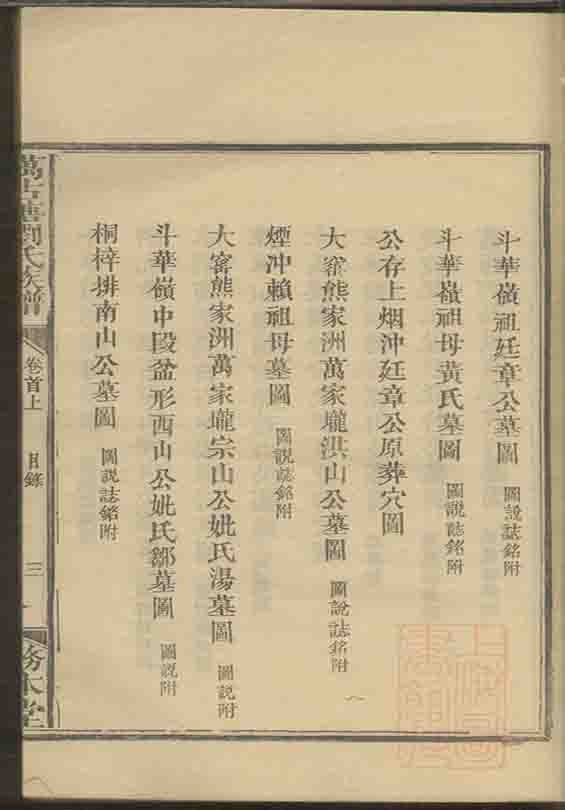 斗華嶺祖廷章公墓圖 圖說誌銘附
斗華嶺祖母黃氏墓圖 圖說誌銘附
公存上烟沖廷章公原葬穴圖
大窰熊家洲萬家壠洪山公墓圖 圖說誌銘附
煙沖賴祖母墓圖 圖說誌銘附
大窰熊家洲萬家壠宗山公妣氏湯墓圖 圖說附
斗華嶺中段盆形西山公妣氏鄒墓圖 圖說附
桐梓排南山公墓圖 圖說誌銘附
萬古塘劉氏族譜 卷首上 目錄 三 務本堂